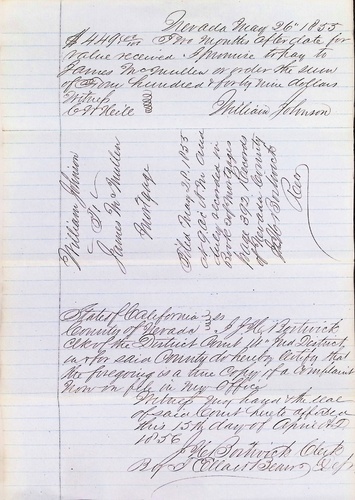 Nevada May 26th 1855
$449 00/100 Two months after date for
value received I promise to pay to
James McMullen or order the sum
of Four hundred & forty nine dollars
Witness
C W Heile William Johnson
William Johnson
To
James McMullen
Mortgage
Filed May 28, 1855
at 9 A M and
duly recorded in
Book of Mortgages
Page 392 Records
of Nevada County
J H Bostwick
Rec
State of California
County of Nevada ss I J H Bostwick
Clk of the District Court 14th Jud District
in & for said County do hereby Certify that
the foregoing is a true Copy of a Complaint
now on file in my Office
Witness my hand & the seal
of said Court hereto affixed
this 15th day of April A D
1856
J H Bostwick Clerk
By Dept